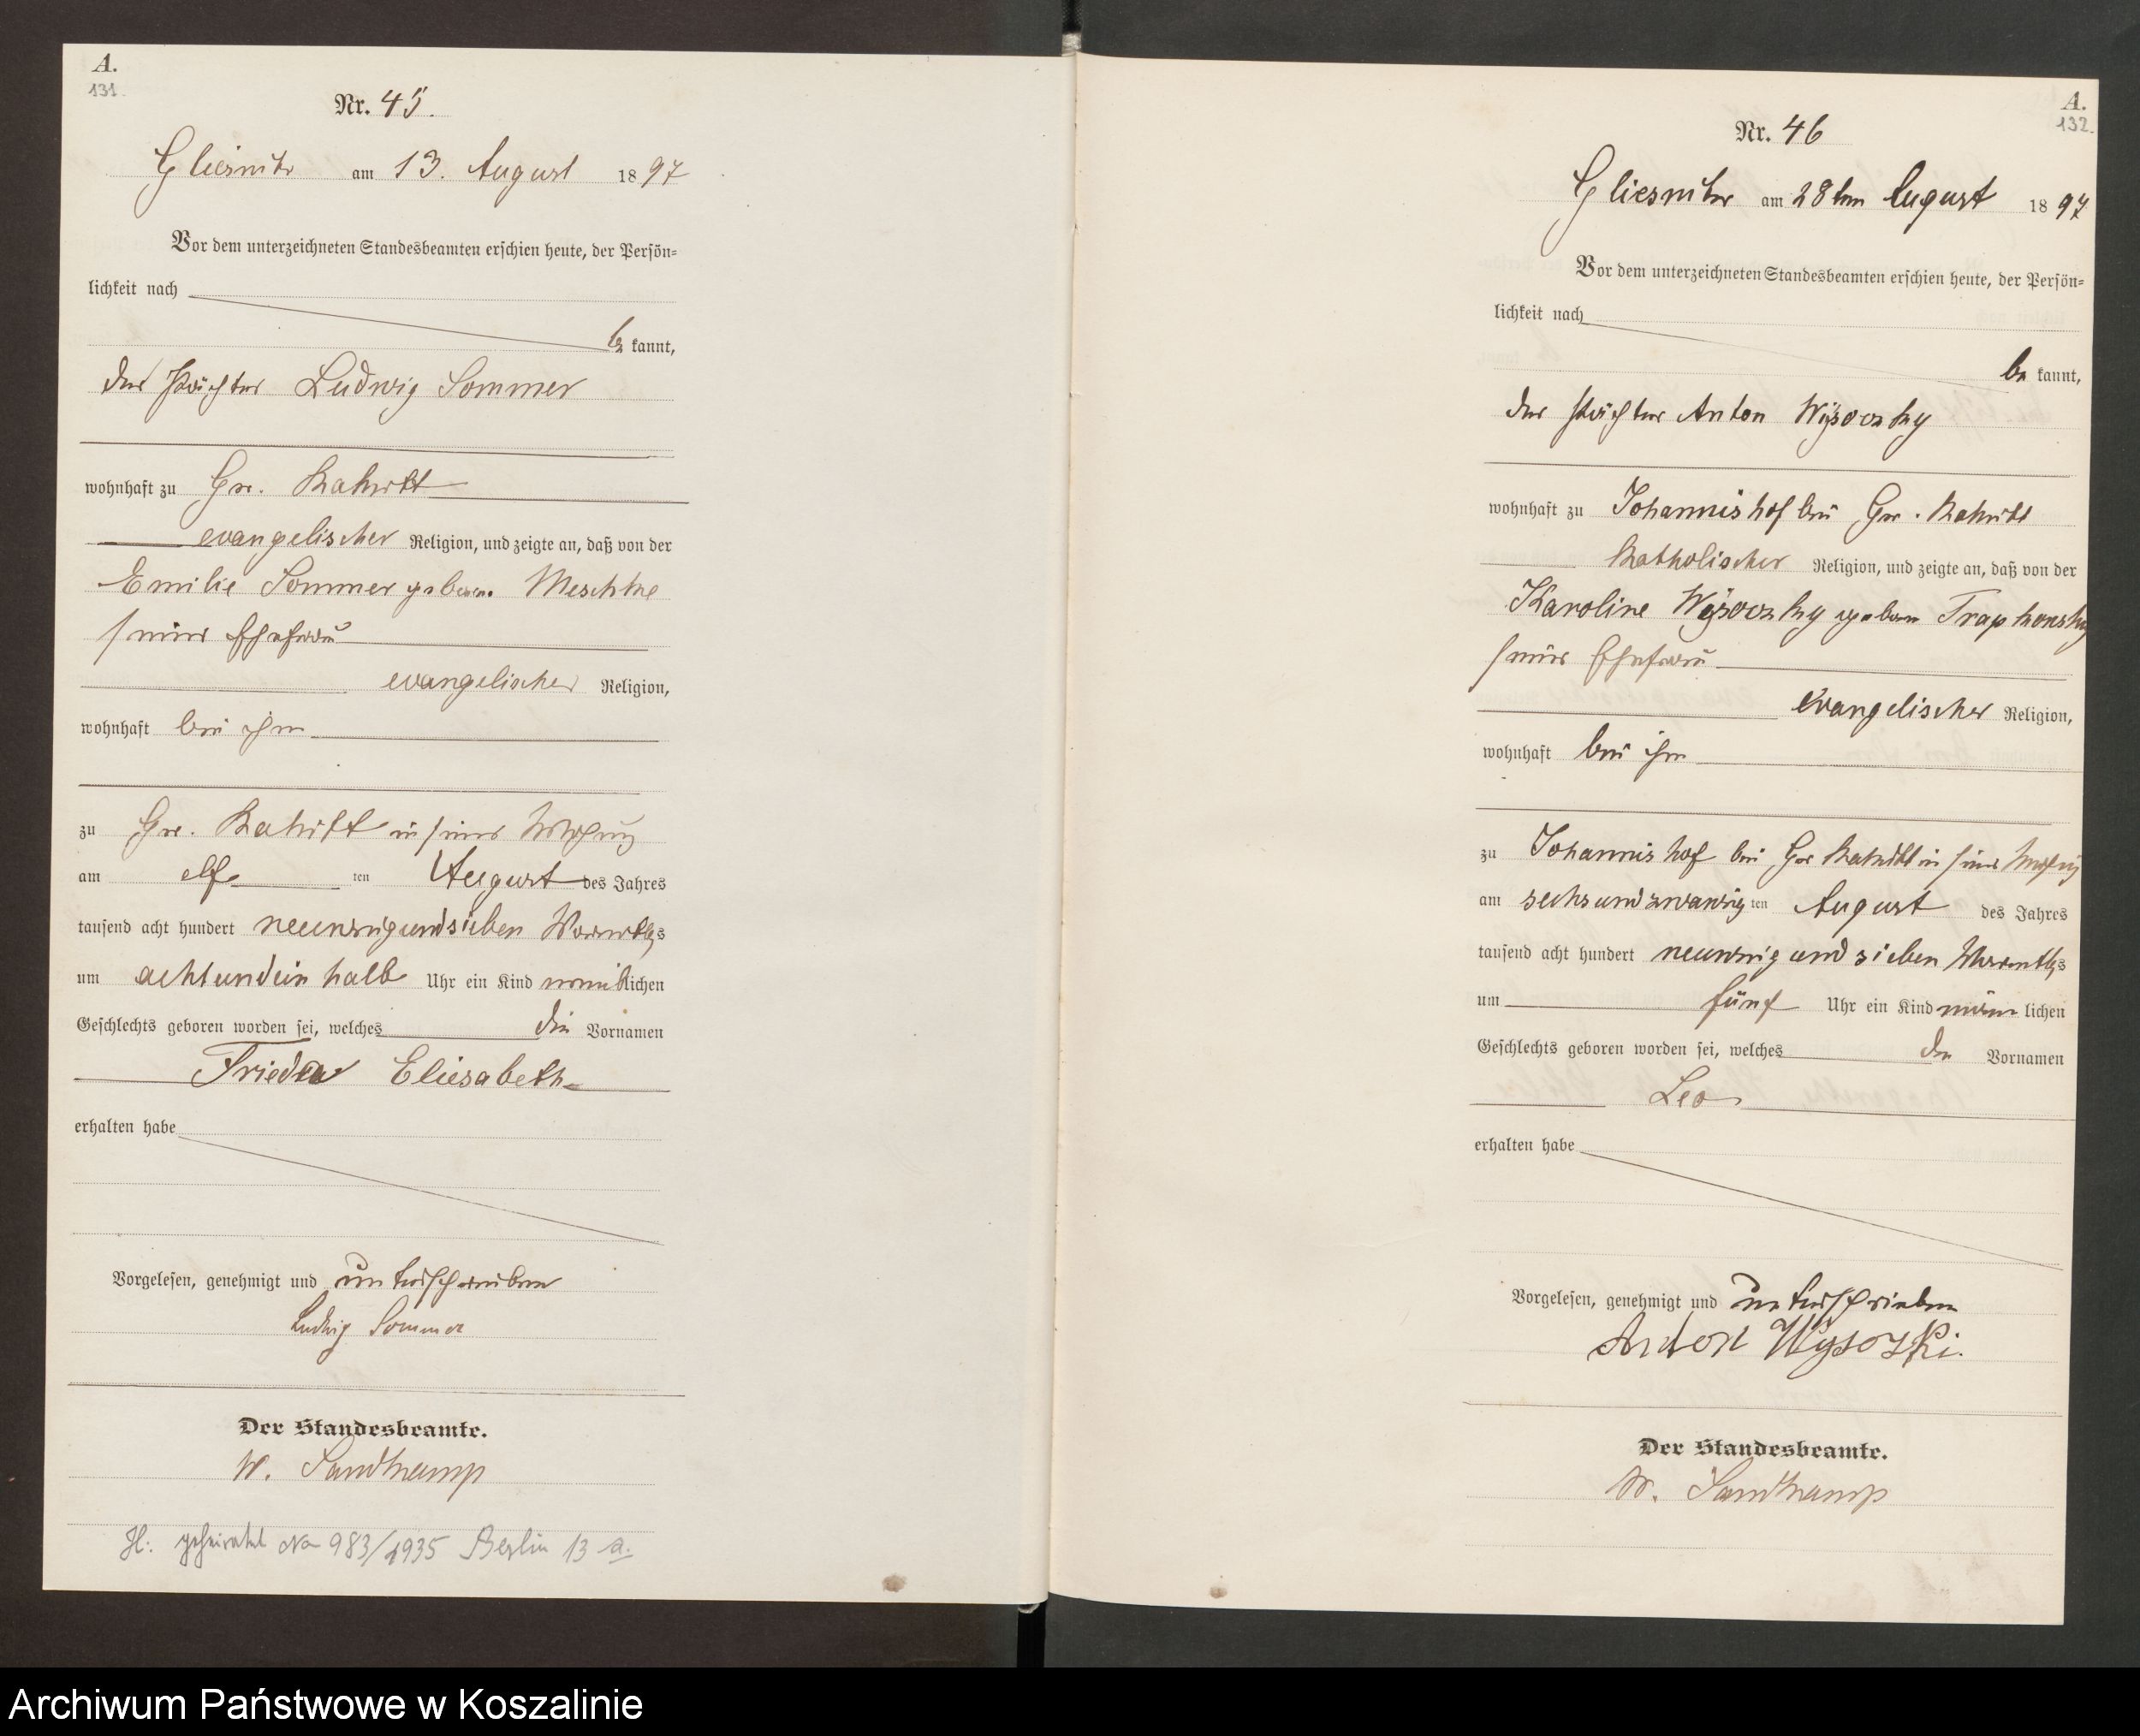 A.
131.
Nr. 45.
Gliesnitz am 13. August 1897
Vor dem unterzeichneten Standesbeamten erschien heute, der Persön=
lichkeit nach
be kannt,
der Pächter Ludwig Sommer
wohnhaft zu Gr. Rakitt
evangelischer Religion, und zeigte an, daß von der
Emilie Sommer geboren. Meschke
seiner Ehefrau
evangelischer Religion,
wohnhaft bei ihm
zu Gr. Rakitt in seiner Wohnung
am elf ten August des Jahres
tausend acht hundert neunzigundsieben Vormittags
um achtundein halb Uhr ein Kind weiblichen
Geschlechts geboren worden sei, welches die Vornamen
Frieda Eliesabeth
erhalten habe
Vorgelesen, genehmigt und unterschrieben
Ludwig Sommer
Der Standesbeamte.
W. Sandkamp
H.: geheiratet No 983/1935 Berlin 13 a.
A.
132.
Nr. 46
Gliesnitz am 28ten August 1897
Vor dem unterzeichneten Standesbeamten erschien heute, der Persön=
lichkeit nach
be kannt,
der Pächter Anton Wysoczky
wohnhaft zu Johannishof bei Gr. Rakitt
katholischer Religion, und zeigte an, daß von der
Karoline Wysoczky geboren
seiner Ehefrau
evangelischer Religion,
wohnhaft bei ihm
zu Johannishof bei Gr Rakitt in seiner Wohnung
am sechsundzwanzig ten August des Jahres
tausend acht hundert neunzig und sieben Vormittags
um fünf Uhr ein Kind männ lichen
Geschlechts geboren worden sei, welches den Vornamen
Leo
erhalten habe
Vorgelesen, genehmigt und unterschrieben
Anton Wysozki.
Der Standesbeamte.
W. Sandkamp
Archiwum Państwowe w Koszalinie